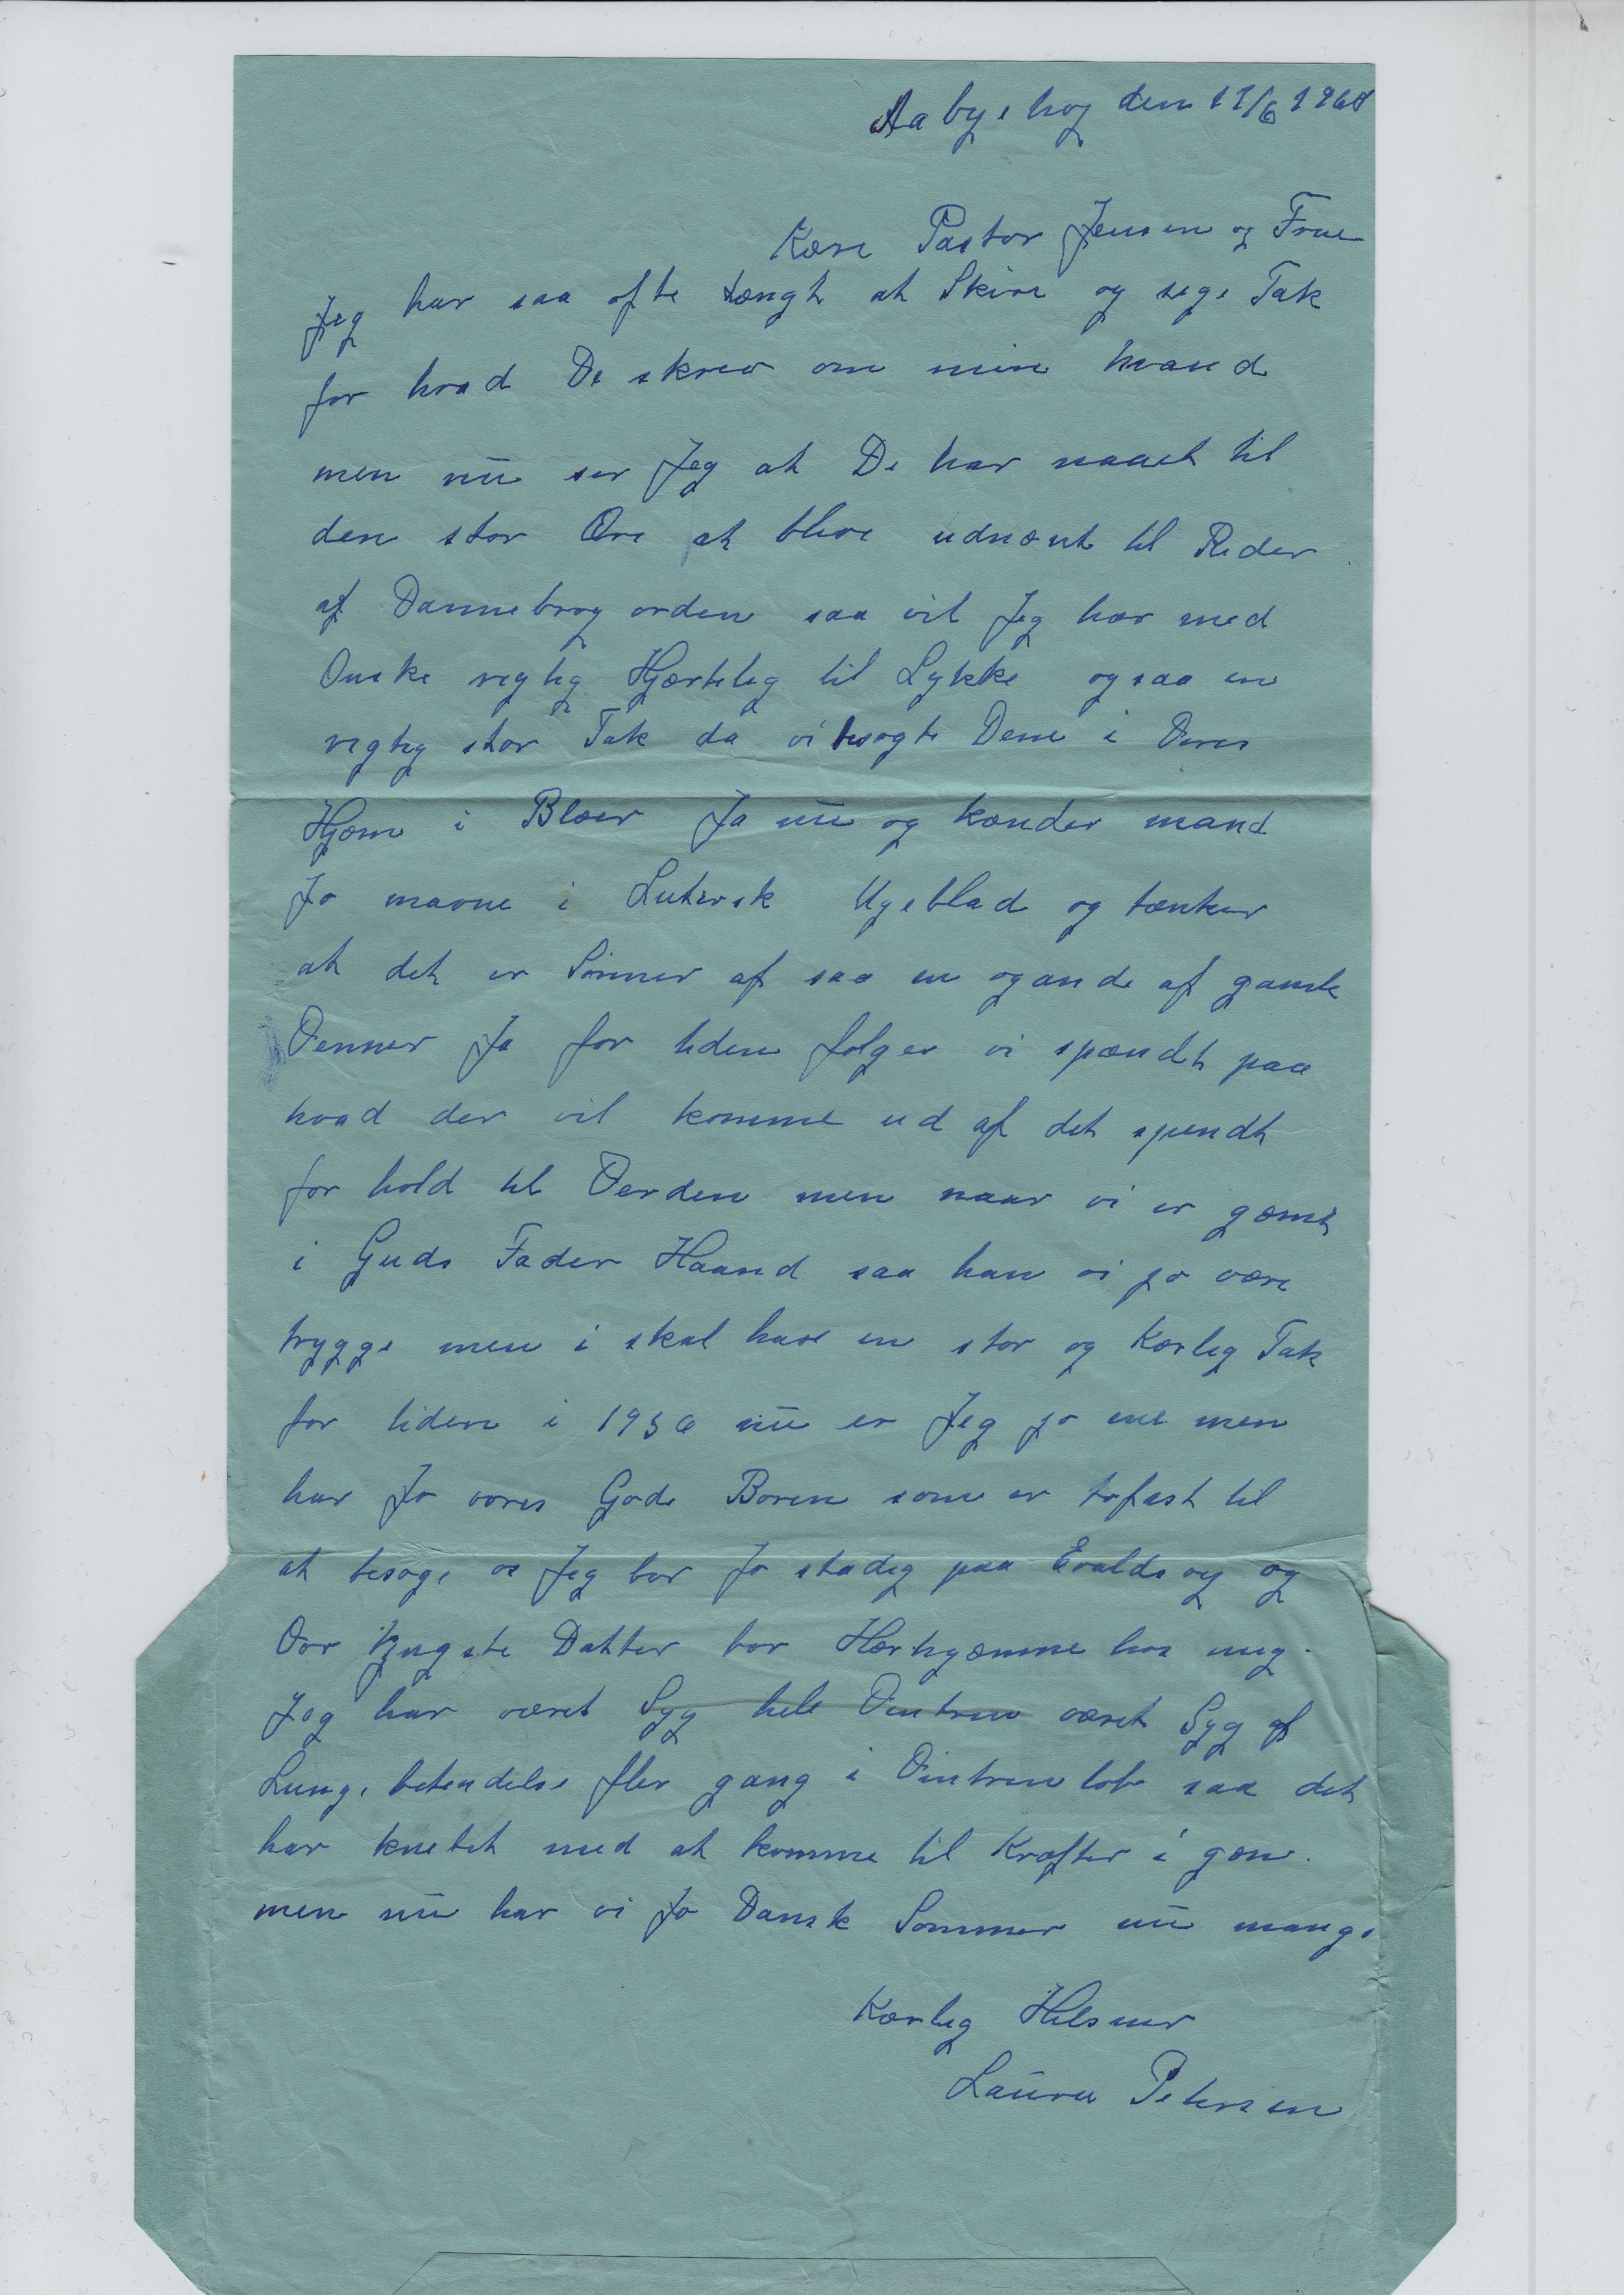 Aabyehøj den 11/6 1968
Kære Pastor Jensen og Frue
Jeg har saa ofte tængt at Skive og sege Tak
for hvad De skrev om min mand
men nu ser Jeg at De har naaet til
den stor Ære at blive udnænt til Reder
af Dannebrog orden saa vil Jeg hær med
Onske regtig Hjærteleg til Lykke ogsaa en
regteg stor Tak da vi besøgte Dem i Deres
Hjæm i Blær Ja nu og kænder mand
Jo navne i Lutersk Ugeblad og tænker
at det er Sønner af saa en og ande af gamle
Venner Ja for tiden følger vi spændt paa
hvad der vil komme ud af det spendt
for hold til Verden men naar vi er gæmt
i Guds Fader Haand saa kan vi jo være
trygge men i skal have en stor og Kærleg Tak
for tiden i 1956 nu er Jeg jo ene men
har Jo vores Gode Børen som er trofast til
at besøge os Jeg bor Jo stadeg paa Evaldsvej og
Vor yngste Datter bor Hær hjæmme hos meg.
Jeg har været Syg hele Vintren været Syg af
Lunge betendelse fler gang i Vintren løb saa det
har knebet med at komme til Kræfter i gæn.
men nu har vi Jo Dansk Sommer nu mange
Kærleg Helsner
Laura Petersen